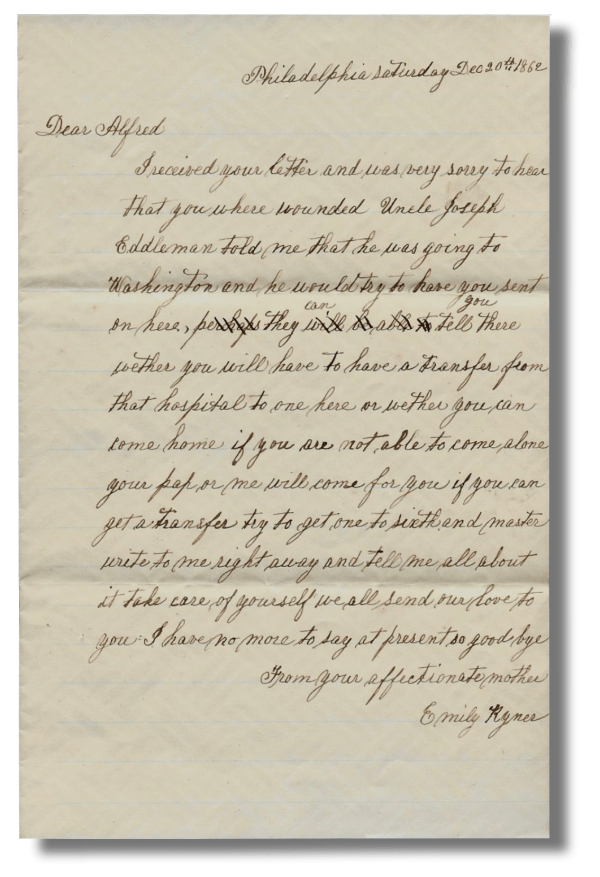 Philadelphia Saturday Dec 20th 1862
Dear Alfred
I received your letter and was very sorry to hear
that you where wounded Uncle Joseph
Eddleman told me that he was going to
Washington and he would try to have you sent
on here, perhaps they will be able to can tell you there
wether you will have to have a transfer from
that hospital to one here or wether you can
come home if you are not able to come alone
your pap or me will come for you if you can
get a transfer try to get one to sixth and master
write to me right away and tell me all about
it take care of yourself we all send our love to
you I have no more to say at present so good bye
From your affectionate mother
Emily Kyner